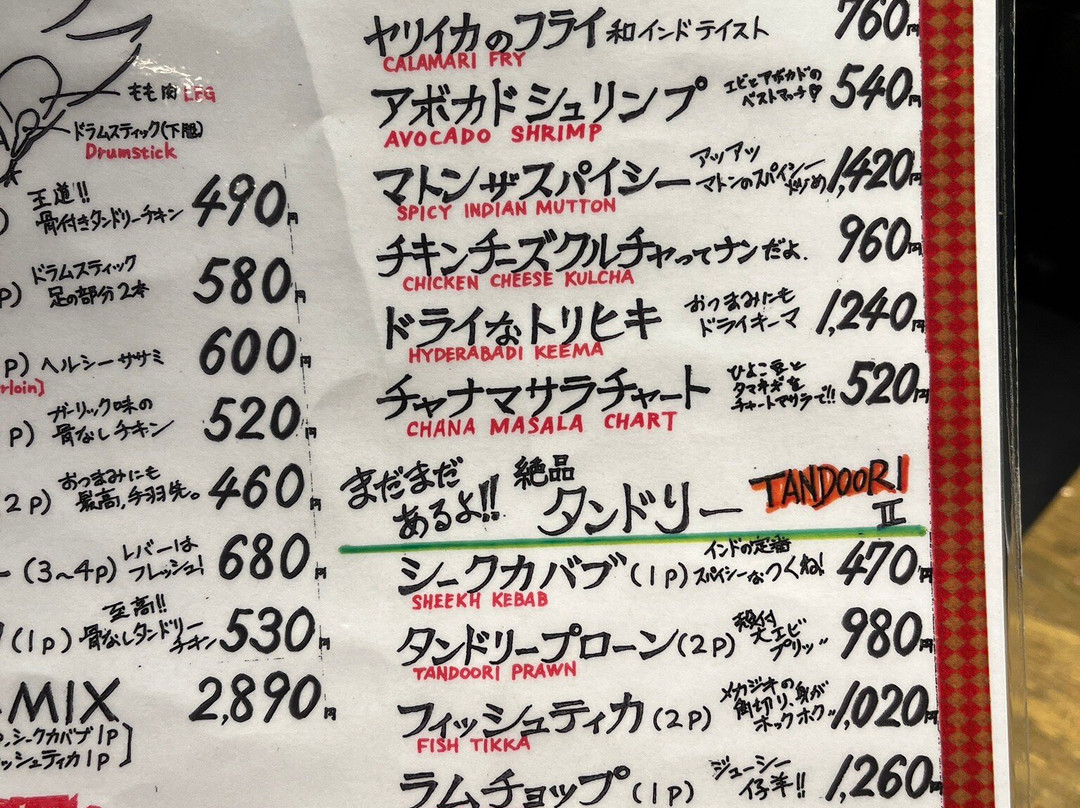 もも肉 LEG
ドラムスティック(下腿)
Drumstick
王道!!
骨付きタンドリーチキン 490円
ドラムスティック
足の部分2本 580円
P) ヘルシーササミ 600円
rloin]
P) ガーリック味の
骨なしチキン 520円
2P) おつまみにも
最高、手羽先。 460円
ー(3〜4P) レバーは
フレッシュ! 680円
(1P) 至高!!
骨なしタンドリー
チキン 530円
MIX 2,890円
P、シークカバブ1P
ッシュティカ1P]
ヤリイカのフライ 和インドテイスト 760円
CALAMARI FRY
アボカドシュリンプ エビとアボカドの
ベストマッチ♡ 540円
AVOCADO SHRIMP
マトンザスパイシー アッアッ
マトンのスパイシー 1,420円
SPICY INDIAN MUTTON
チキンチーズクルチャってナンだよ. 960円
CHICKEN CHEESE KULCHA
ドライなトリヒキ おつまみにも
ドライキーマ 1,240円
HYDERABADI KEEMA
チャナマサラチャート ひよこ豆と
タマネギを
チャートマサラで!! 520円
CHANA MASALA CHART
まだまだ
あるよ!! 絶品
タンドリー TANDOORI
II
シークカバブ(1P) インドの定番
スパイシーなつくね! 470円
SHEEKH KEBAB
タンドリープローン(2P) 殻付
大エビ
プリッ 980円
TANDOORI PRAWN
フィッシュティカ(2P) メカジキの
角切り、身が
ホックホク 1,020円
FISH TIKKA
ラムチョップ(1P) ジューシー
仔羊!! 1,260円